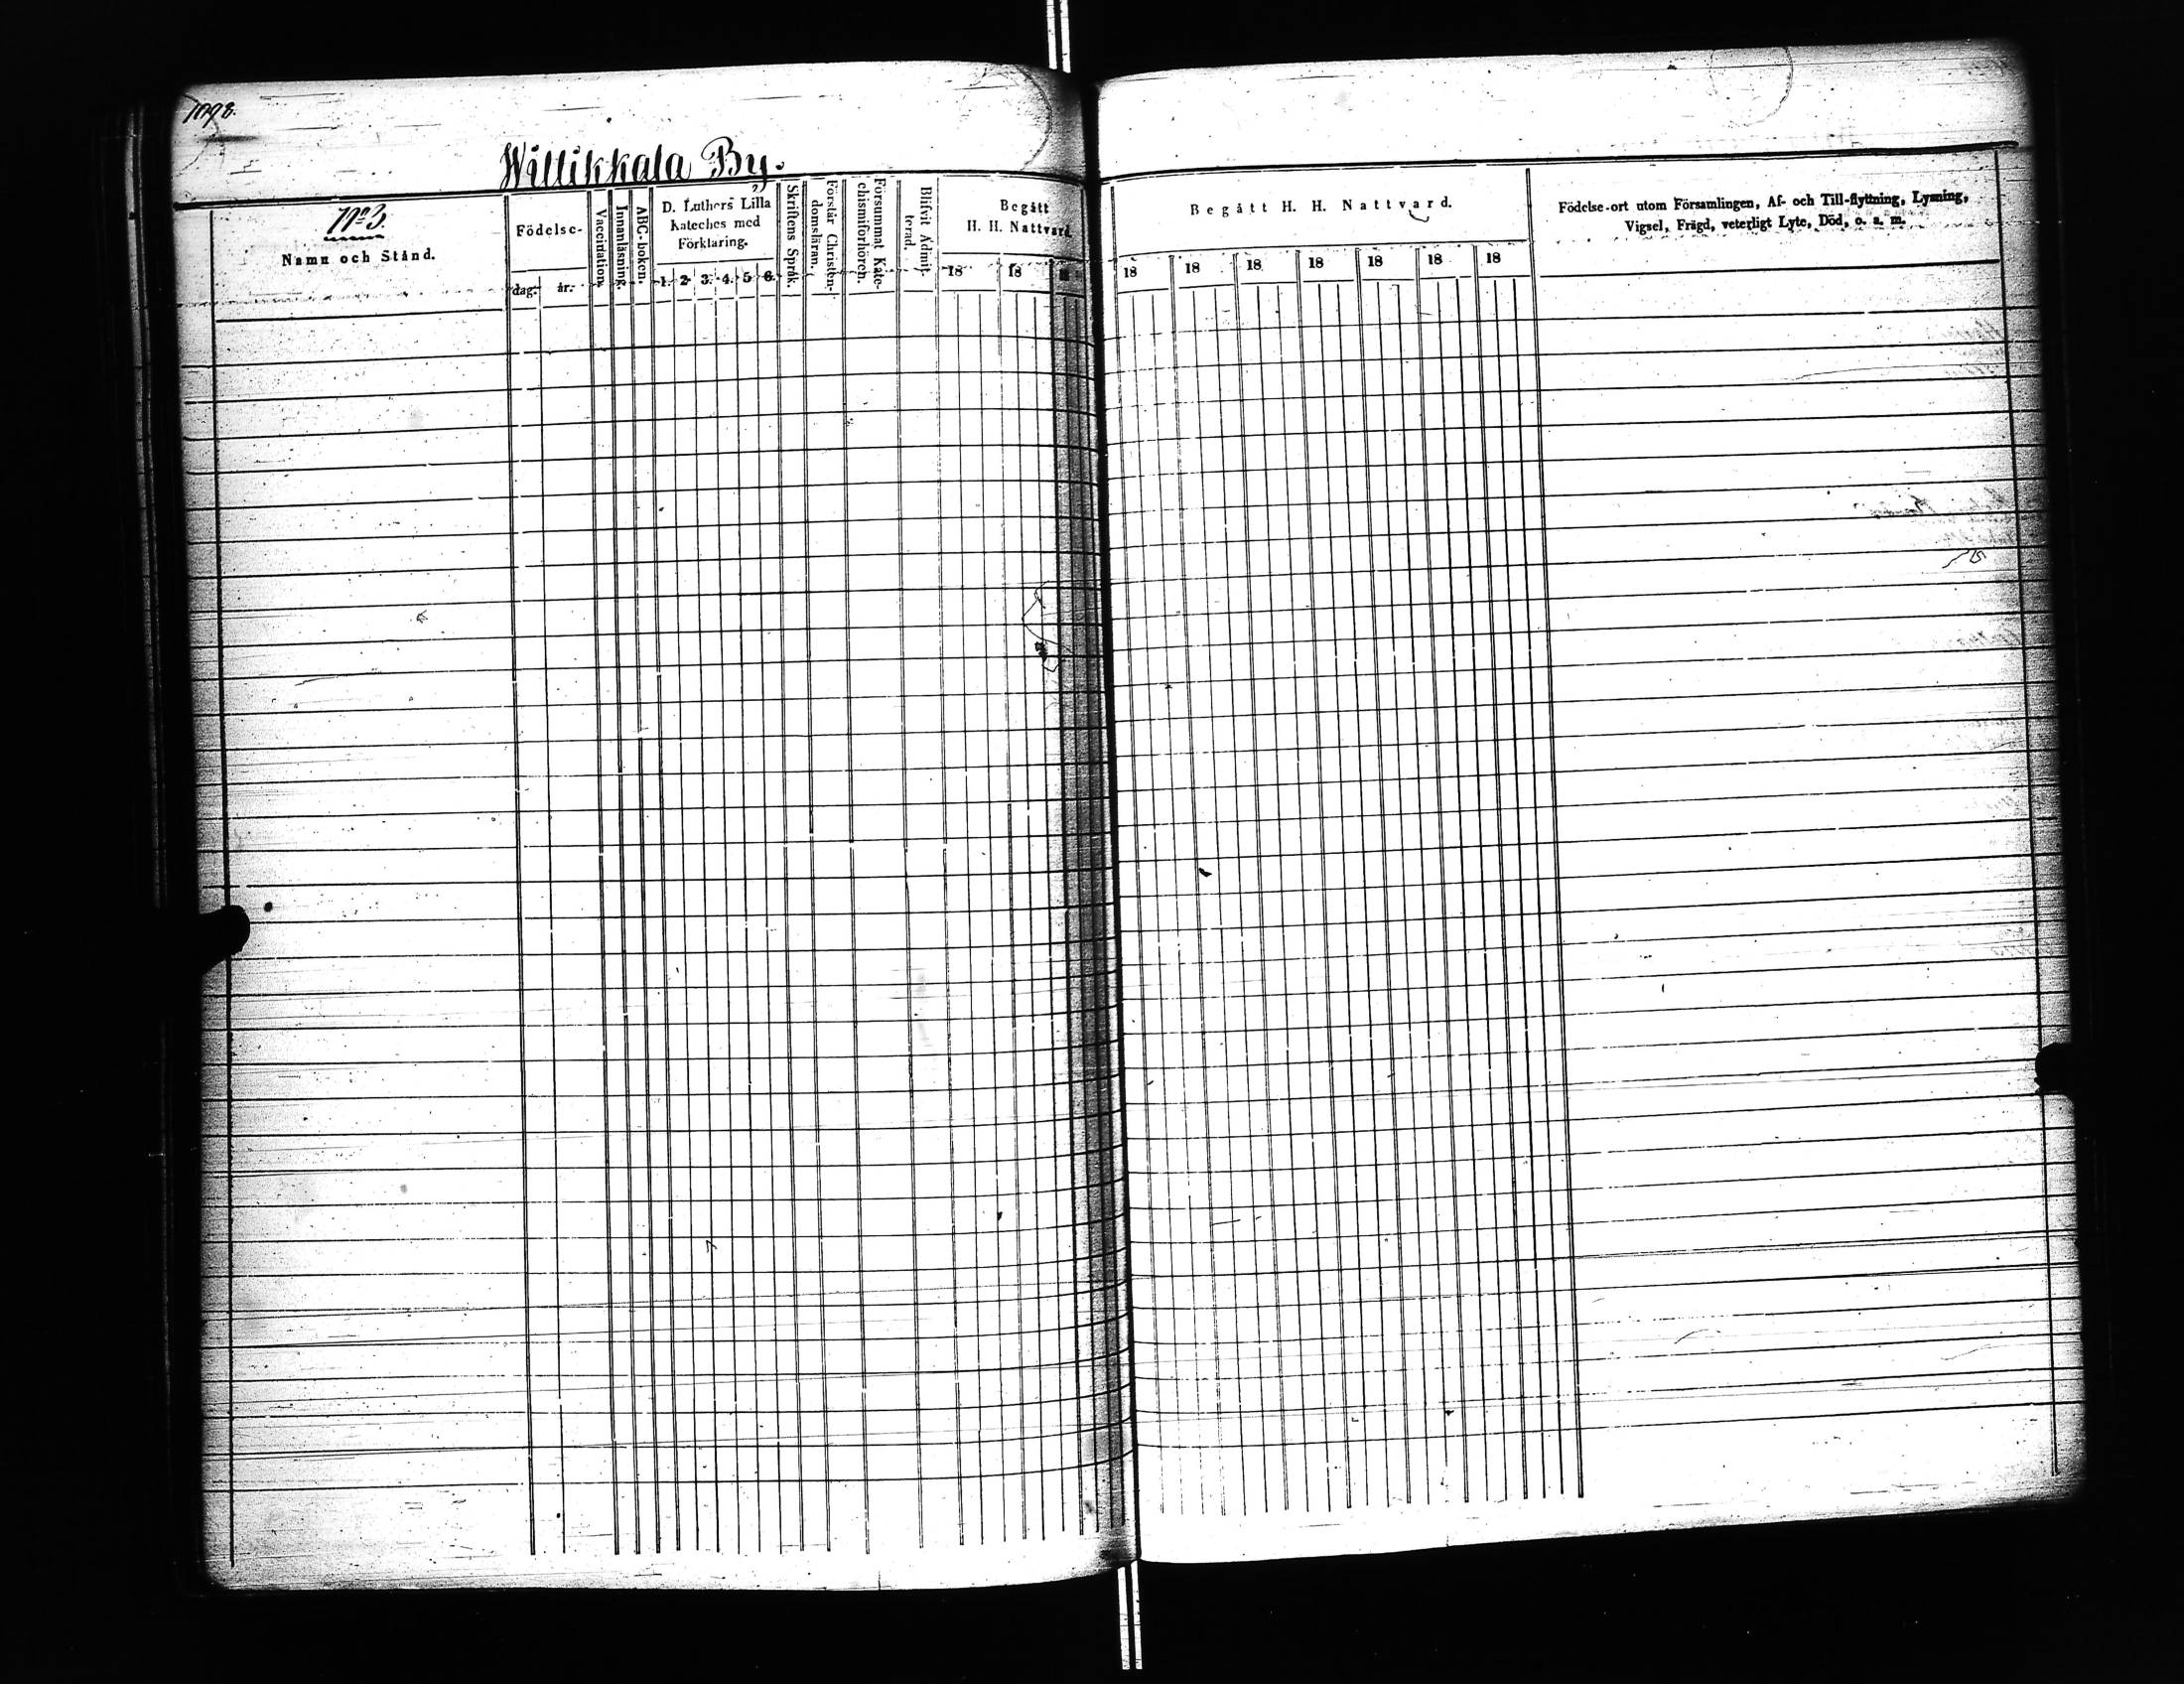 1098.
Willikkala By.
No 3.
Namn och Stånd.
Födelse-
dag.
år.
Vaccination.
Innanläsning.
ABC-boken.
D. Luthers Lilla
Kateches med
Förklaring.
1. 2. 3. 4. 5 6.
Skriftens Språk.
Förstår Christen-
domsläran.
Försummat Kate-
chismiförhören.
Blifvit Admit-
terad.
Begått
H. H. Nattvard.
18 18 18
Begått H. H. Nattvard.
18 18 18 18 18 18 18
Födelse-ort utom Församlingen, Af- och Till-flyttning, Lysning,
Vigsel, Frägd, veterligt Lyte, Död, o. s. m.